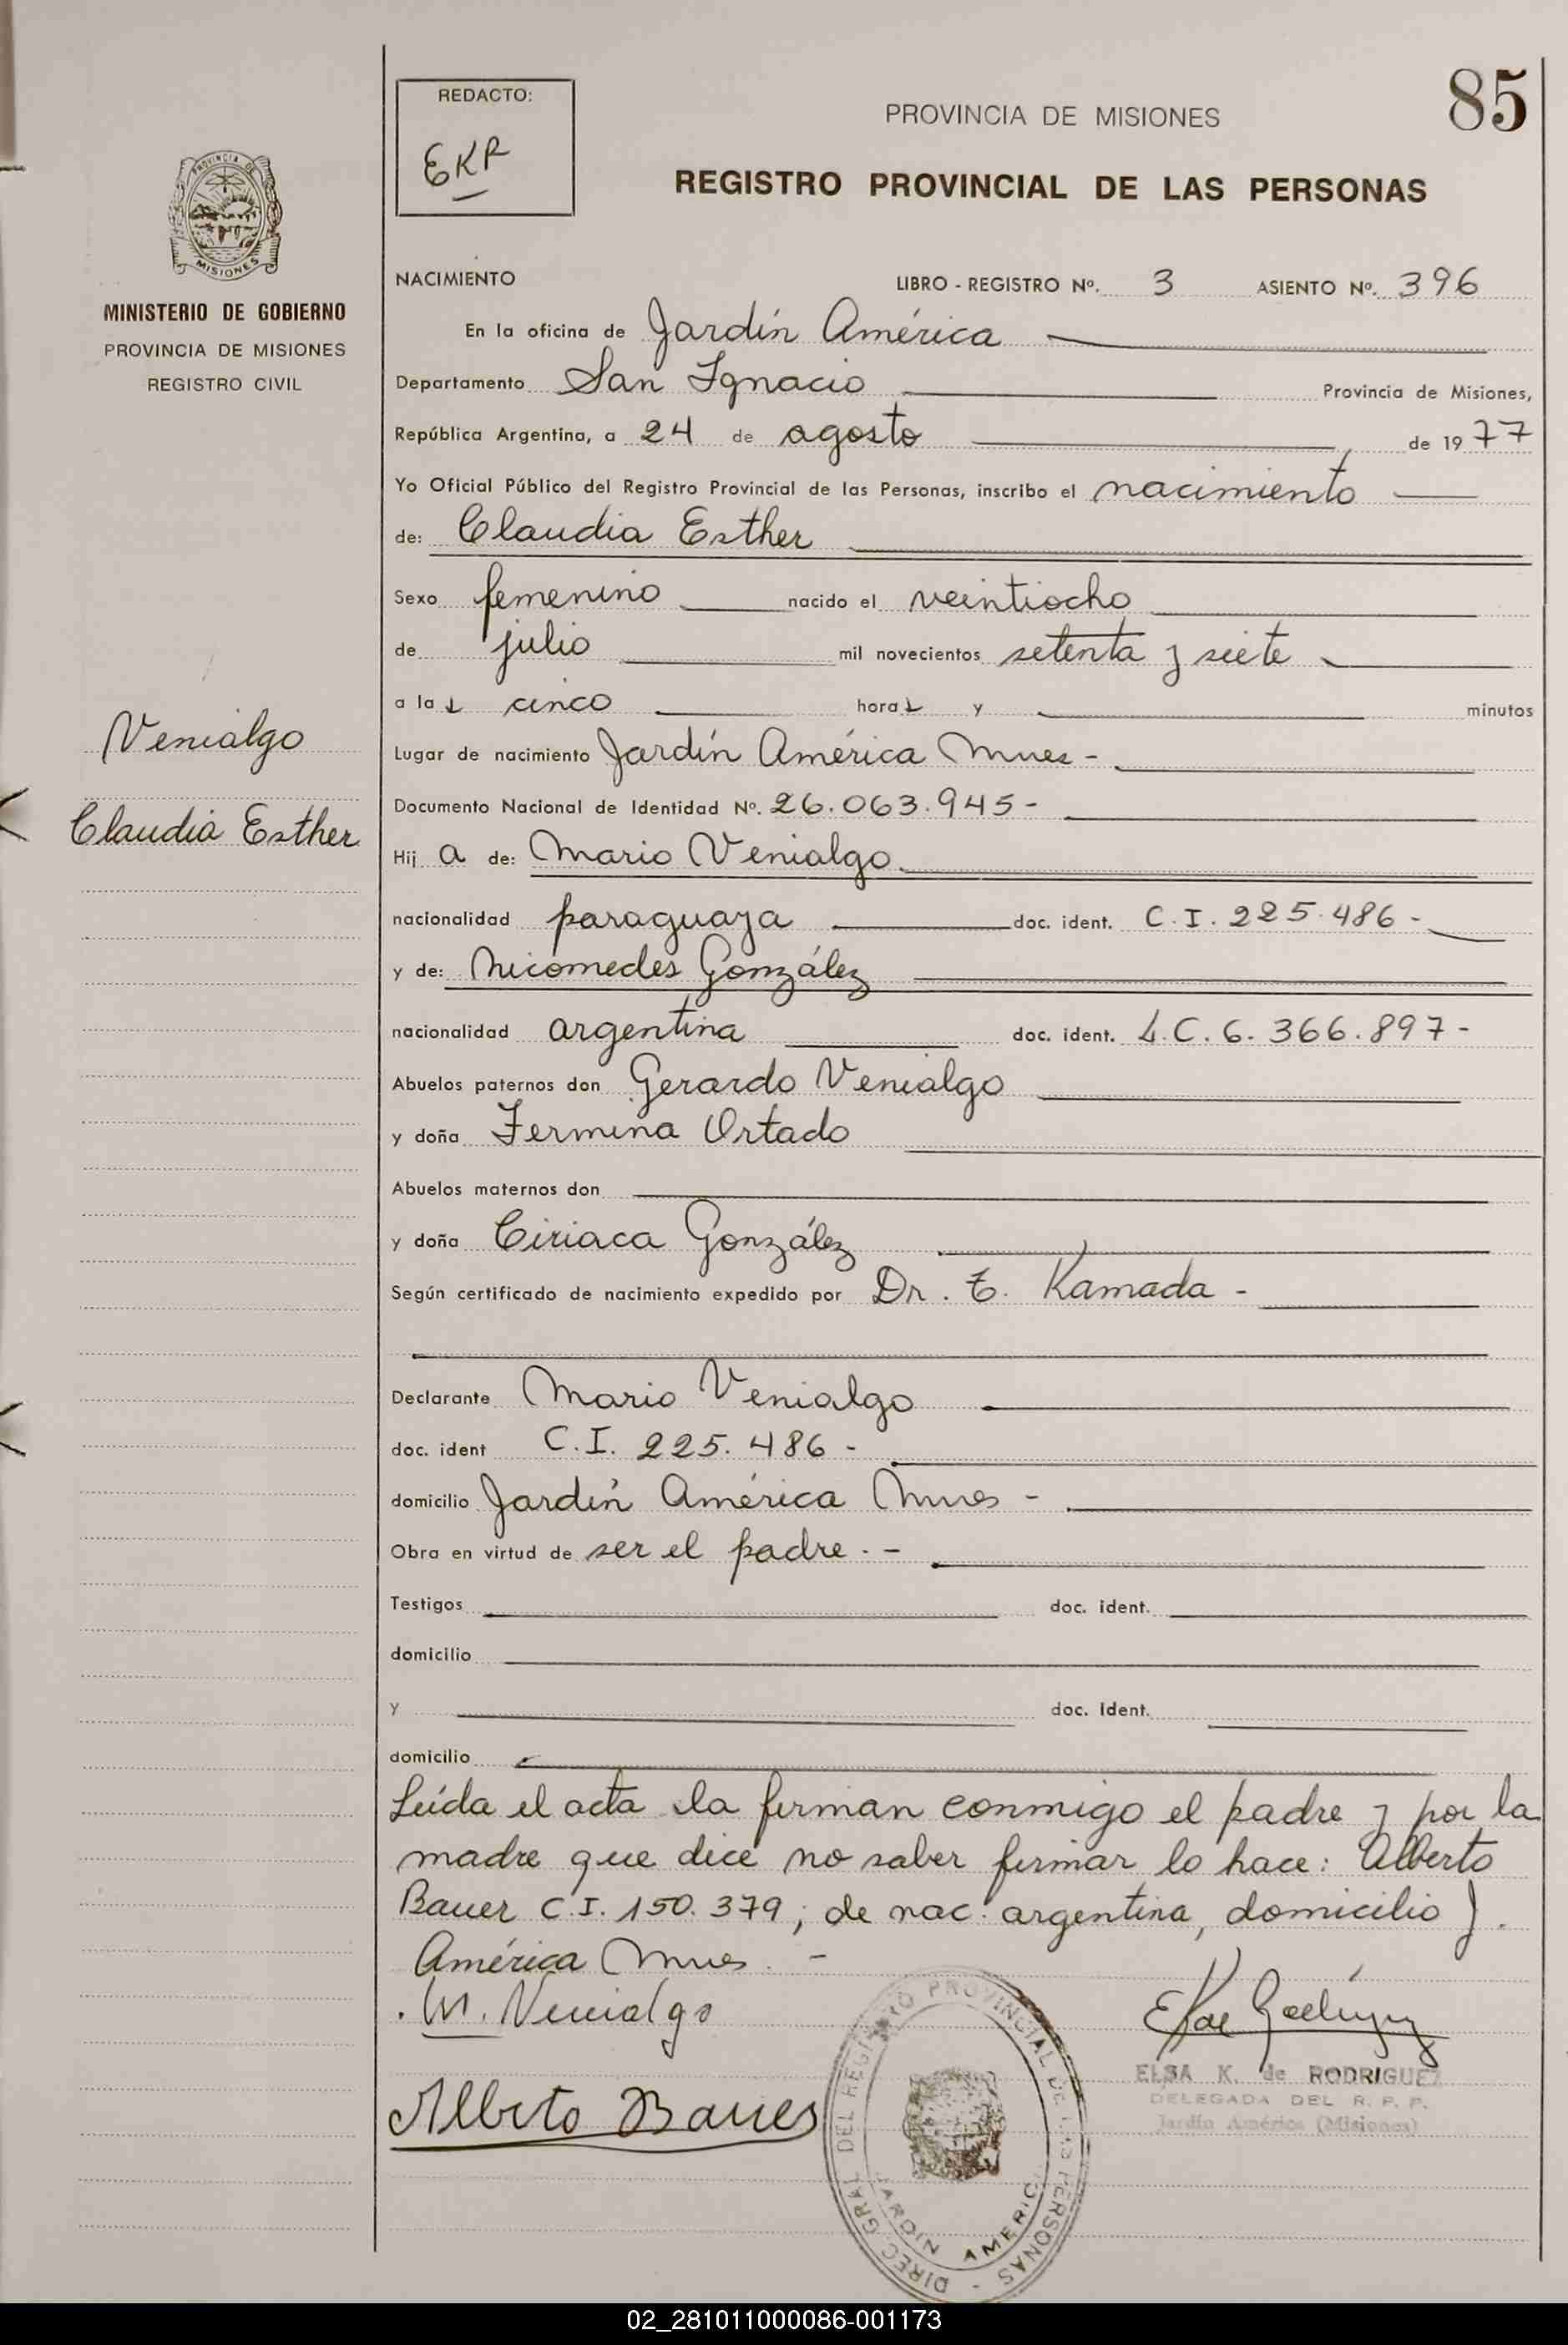 REDACTO:
EKR
PROVINCIA DE MISIONES
85
REGISTRO PROVINCIAL DE LAS PERSONAS
PROVINCIA DE
MISIONES
MINISTERIO DE GOBIERNO
PROVINCIA DE MISIONES
REGISTRO CIVIL
Venialgo
Claudia Esther
NACIMIENTO LIBRO - REGISTRO Nº. 3 ASIENTO Nº. 396
En la oficina de Jardín América
Departamento San Ignacio Provincia de Misiones,
República Argentina, a 24 de agosto de 1977
Yo Oficial Público del Registro Provincial de las Personas, inscribo el nacimiento
de: Claudia Esther
Sexo femenino nacido el veintiocho
de julio mil novecientos setenta y siete
a las cinco horas y minutos
Lugar de nacimiento Jardín América Mnes -
Documento Nacional de Identidad Nº. 26.063.945-
Hij a de: Mario Venialgo
nacionalidad paraguaya doc. ident. C.I. 225.486-
y de: Nicomedes González
nacionalidad argentina doc. ident. L.C. 6.366.897-
Abuelos paternos don Gerardo Venialgo
y doña Fermina Ortado
Abuelos maternos don
y doña Ciriaca González
Según certificado de nacimiento expedido por Dr. T. Kamada -
Declarante Mario Venialgo
doc. ident C.I. 225.486-
domicilio Jardín América Mnes -
Obra en virtud de ser el padre. -
Testigos doc. ident.
domicilio
y doc. Ident.
domicilio
Leída el acta la firman conmigo el padre y por la
madre que dice no saber firmar lo hace: Alberto
Bauer C.I. 150.379, de nac. argentina, domicilio J.
América Mnes. -
M. Venialgo
Alberto Bauer
DIREC. GRAL. DEL REGISTRO PROVINCIAL DE LAS PERSONAS -
JARDIN AMERICA
ELSA K. de RODRIGUEZ
DELEGADA DEL R. P. P.
Jardín América (Misiones)
02_281011000086-001173